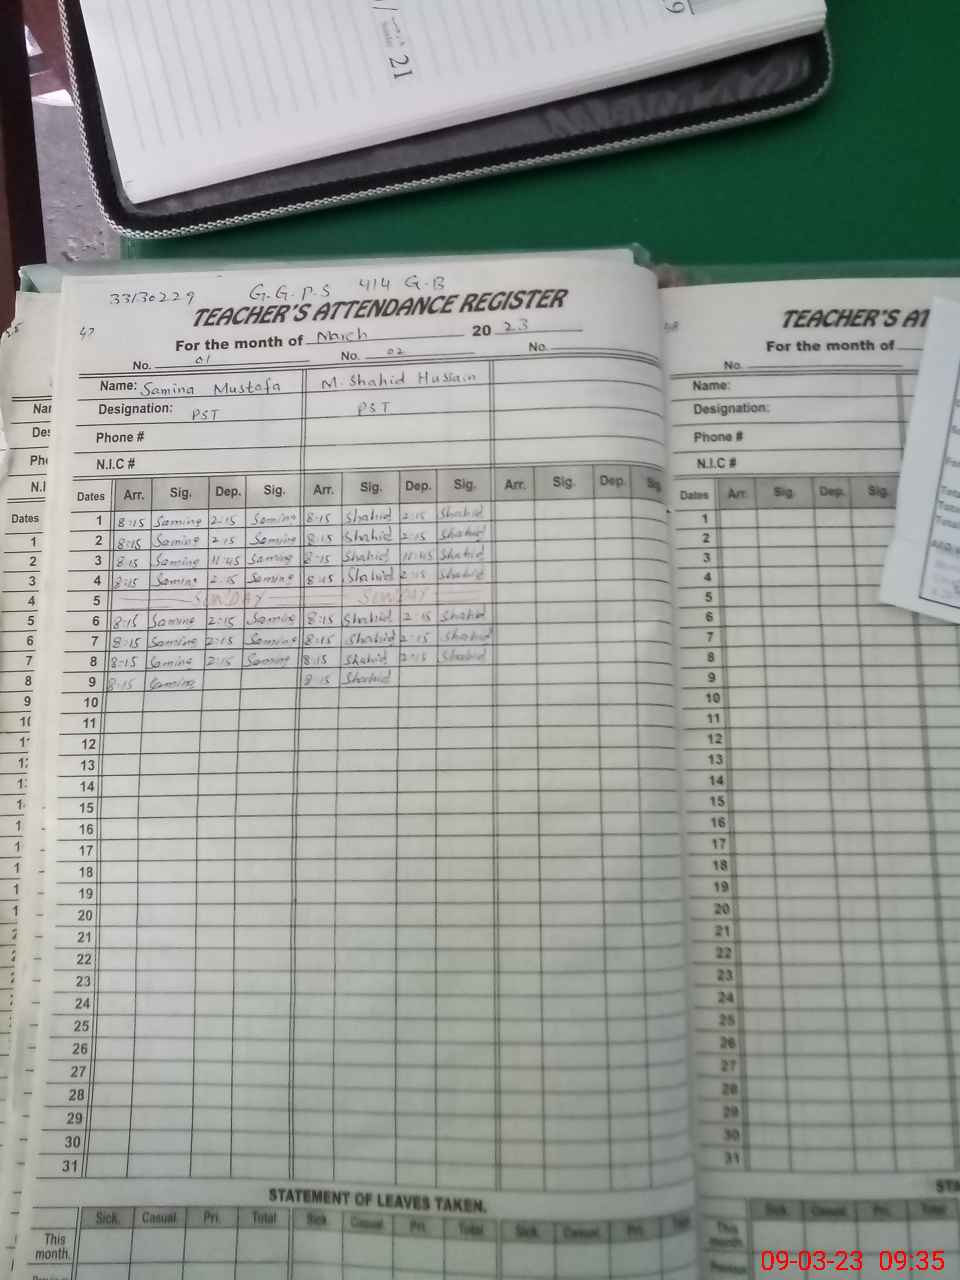 21
33130229 G.G.P.S 414 G.B
TEACHER'S ATTENDANCE REGISTER
47
For the month of March 2023
No. 01 No. 02 No.
Name: Samina Mustafa M. Shahid Hussain
Designation: PST PST
Phone #
N.I.C #
Dates Arr. Sig. Dep. Sig. Arr. Sig. Dep. Sig. Arr. Sig. Dep. Sig.
1 8:15 Samina 2:15 Samina 8:15 Shahid 2:15 Shahid
2 8:15 Samina 2:15 Samina 8:15 Shahid 2:15 Shahid
3 8:15 Samina 11:45 Samina 8:15 Shahid 11:45 Shahid
4 8:15 Samina 2:15 Samina 8:15 Shahid 2:15 Shahid
5 SUNDAY SUNDAY
6 8:15 Samina 2:15 Samina 8:15 Shahid 2:15 Shahid
7 8:15 Samina 2:15 Samina 8:15 Shahid 2:15 Shahid
8 8:15 Samina 2:15 Samina 8:15 Shahid 2:15 Shahid
9 8:15 Samina 8:15 Shahid
10
11
12
13
14
15
16
17
18
19
20
21
22
23
24
25
26
27
28
29
30
31
STATEMENT OF LEAVES TAKEN.
Sick. Casual. Pri. Total Sick. Casual. Pri. Total Sick. Casual. Pri.
This
month.
TEACHER'S AT
For the month of
No.
Name:
Designation:
Phone #
N.I.C #
Dates Arr. Sig. Dep. Sig.
1
2
3
4
5
6
7
8
9
10
11
12
13
14
15
16
17
18
19
20
21
22
23
24
25
26
27
28
29
30
31
Sick. Casual. Pri. Total
This
month.
Dates
1
2
3
4
5
6
7
8
9
09-03-23 09:35